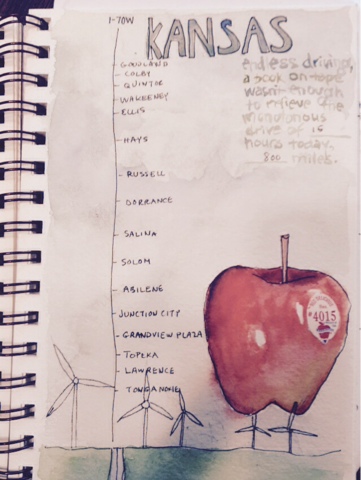 I-70W
KANSAS
GOODLAND
COLBY
QUINTOR
WAKEENEY
ELLIS
HAYS
RUSSELL
DORRANCE
SALINA
SOLOM
ABILENE
JUNCTION CITY
GRANDVIEW PLAZA
TOPEKA
LAWRENCE
TONGANOXIE
endless driving,
a book on tape
wasn't enough
to relieve the
monotonous
drive of 16
hours today.
800 miles.
#4015